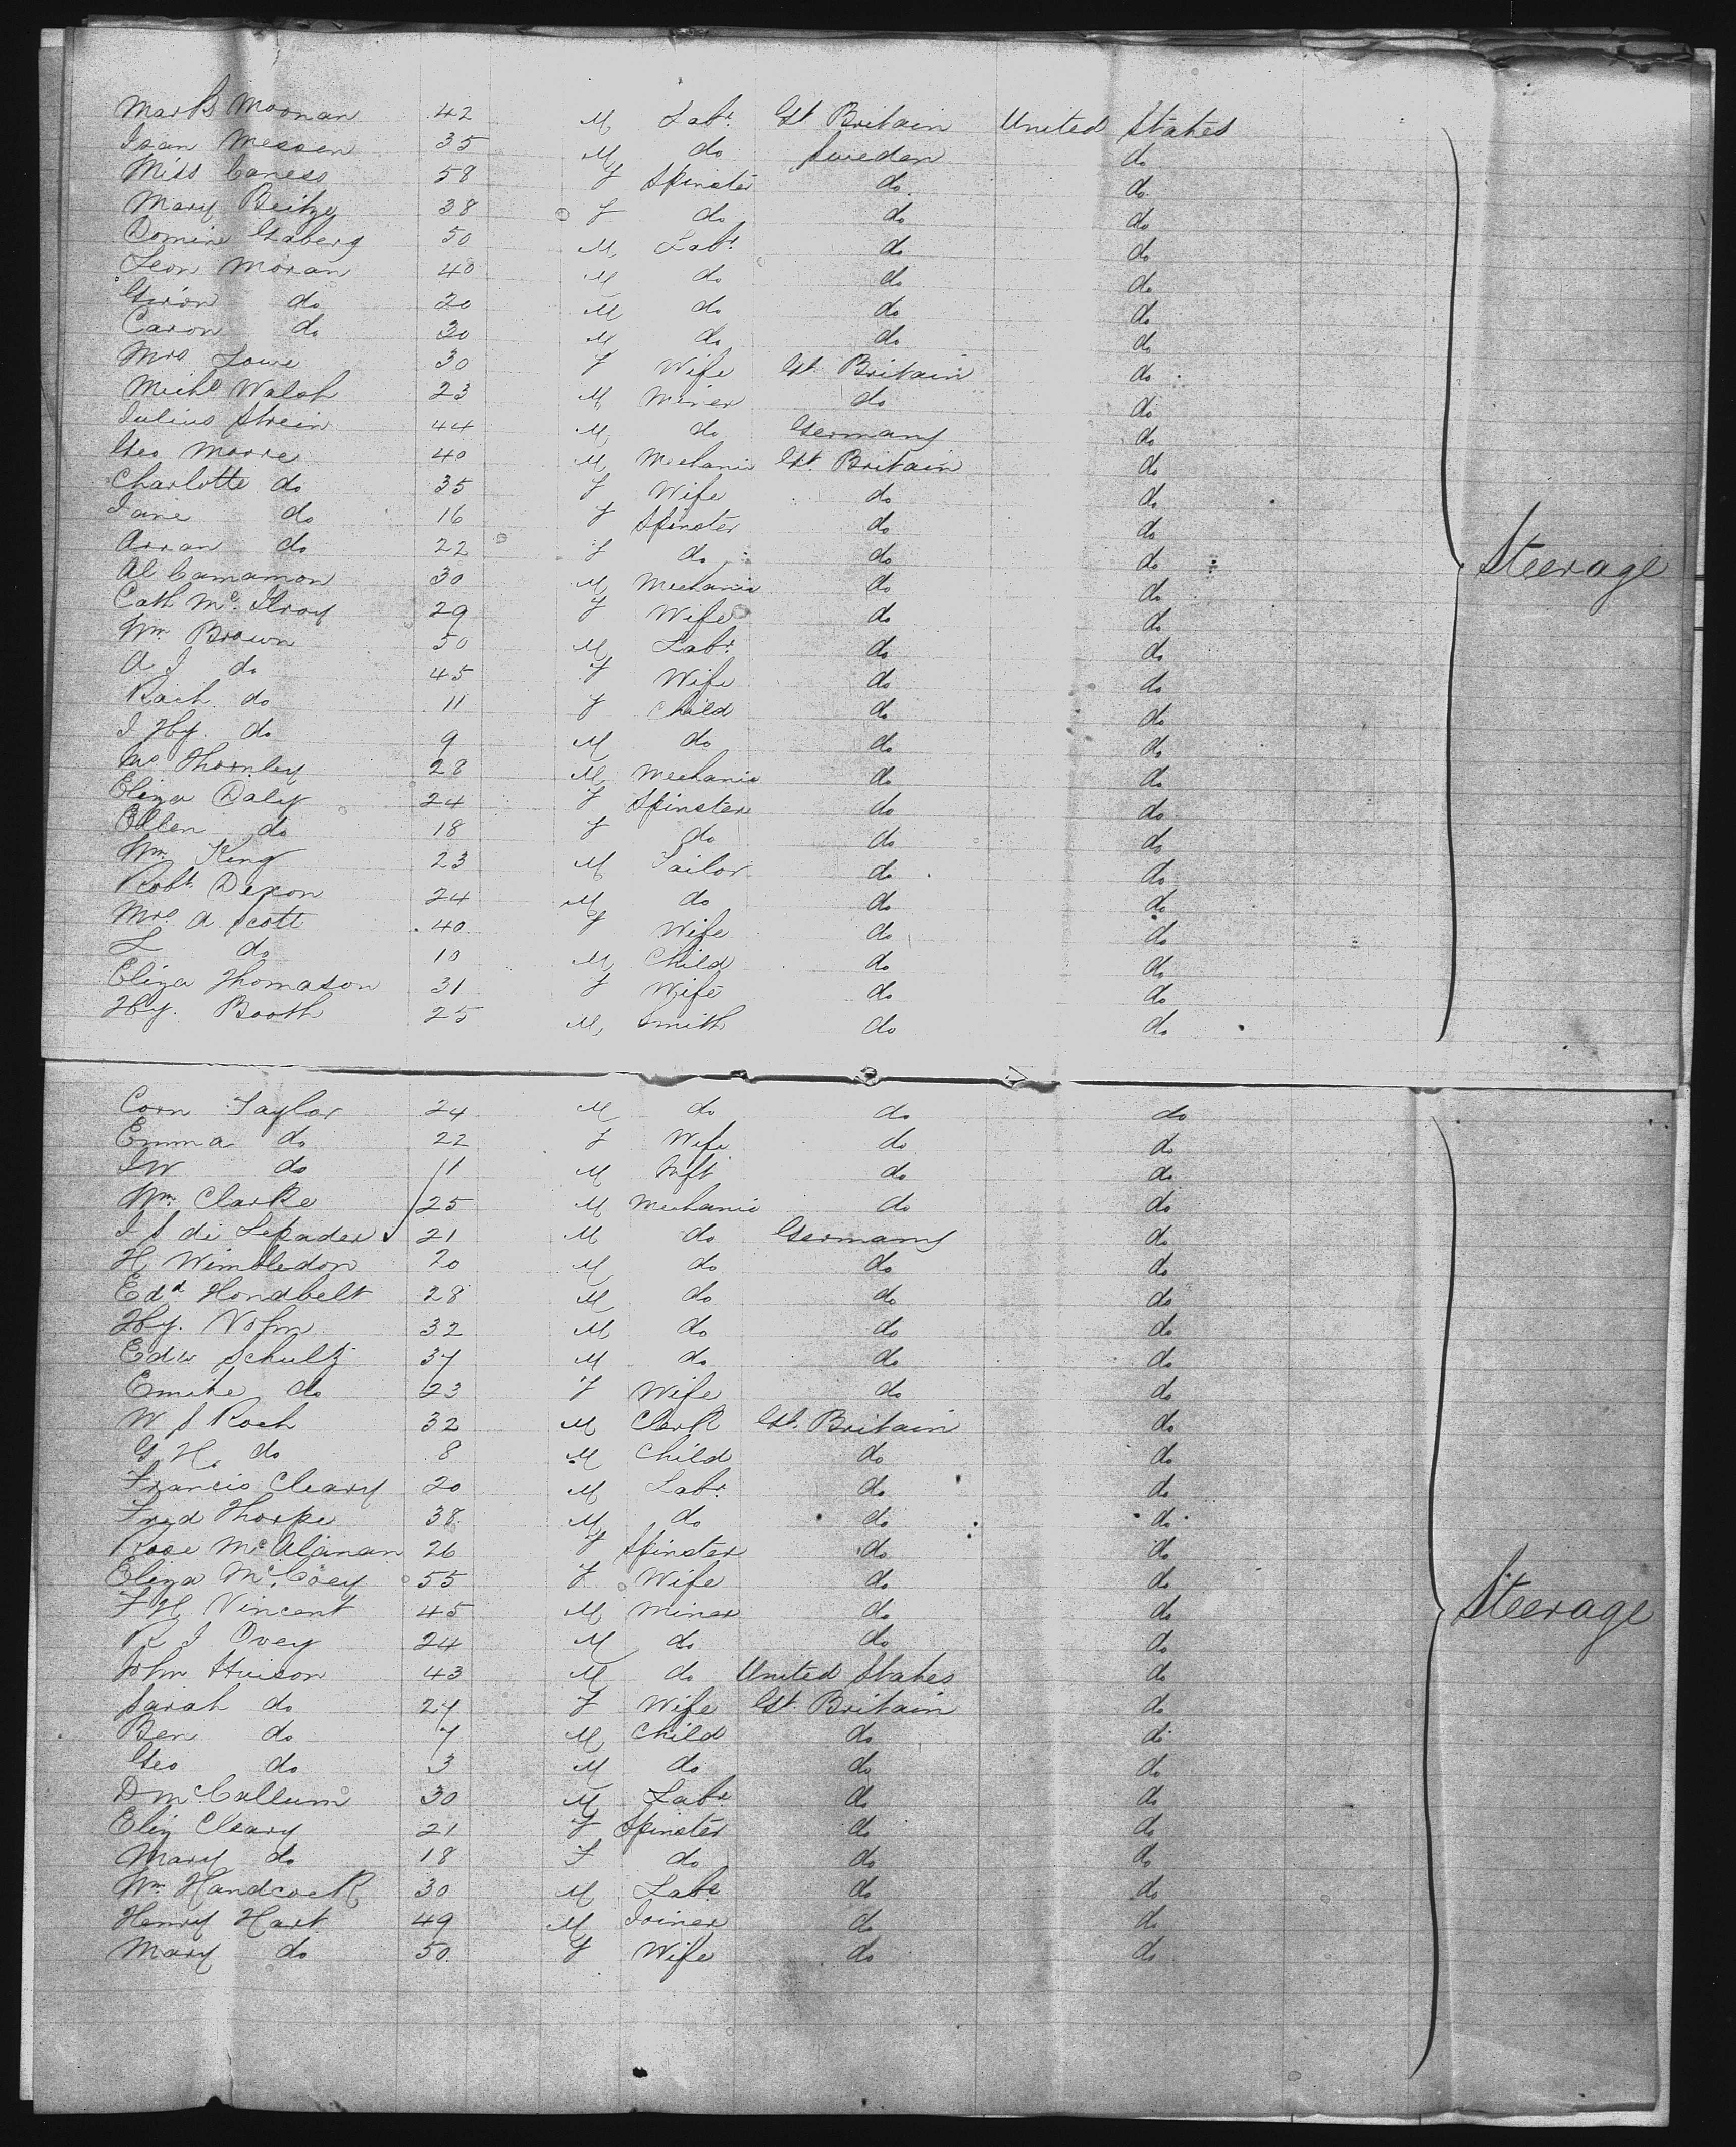 Mark Moonan 42 M Labr. Gt Britain United States
Isan Messen 35 M do Sweden do
Miss Caness 58 F Spinster do do
Mary Beitzy 38 F do do do
Domine Gaberg 50 M Labr. do do
Leon Moran 40 M do do do
do 20 M do do do
Caron do 30 M do do do
Mrs Lowe 30 F Wife Gt. Britain do
Michl Walsh 23 M Miner do do
Julius Strein 44 M do Germany do
Geo Moore 40 M Mechanic Gt. Britain do
Charlotte do 35 F Wife do do
Jane do 16 F Spinster do do
Arran do 22 F do do do
Al Camamon 30 M Mechanic do do
Cath Mc. Ilroy 29 F Wife do do
Wm. Brown 50 M Labr. do do
A J do 45 F Wife do do
Rach. do 11 F Child do do
J Hy. do 9 M do do do
Jas Thornley 28 M Mechanic do do
Eliza Daly 24 F Spinster do do
Ellen do 18 F do do do
Wm. King 23 M Tailor do do
Robt. Dexon 24 M do do do
Mrs A Scott 40 F Wife do do
do 10 M Child do do
Eliza Thomason 31 F Wife do do
Hy. Booth 25 M Smith do do
Steerage
Corn Taylor 24 M do do do
Emma do 22 F Wife do do
J W do 11 M Inft do do
Wm. Clarke 25 M Mechanic do do
J S di Lepader 21 M do Germany do
H Wimbledon 20 M do do do
Edd Hondbelt 28 M do do do
Hy. Vohn 32 M do do do
Edw Schultz 37 M do do do
Emike do 23 F Wife do do
W S Roch 32 M Clerk Gt. Britain do
G. H. do 8 M Child do do
Francis Cleary 20 M Labr. do do
Fred Thorpe 38 M do do do
Rose McAljanan 26 F Spinster do do
Eliza McCoey 55 F Wife do do
F H Vincent 45 M Miner do do
R J Ovey 24 M do do do
John 43 M do United States do
Sarah do 27 F Wife Gt. Britain do
Ben do 7 M Child do do
Geo do 3 M do do do
D McCallum 30 M Labr do do
Eliz Cleary 21 F Spinster do do
Mary do 18 F do do do
Wm. Handcock 30 M Labr do do
Henry Hart 49 M Joiner do do
Mary do 50 F Wife do do
Steerage